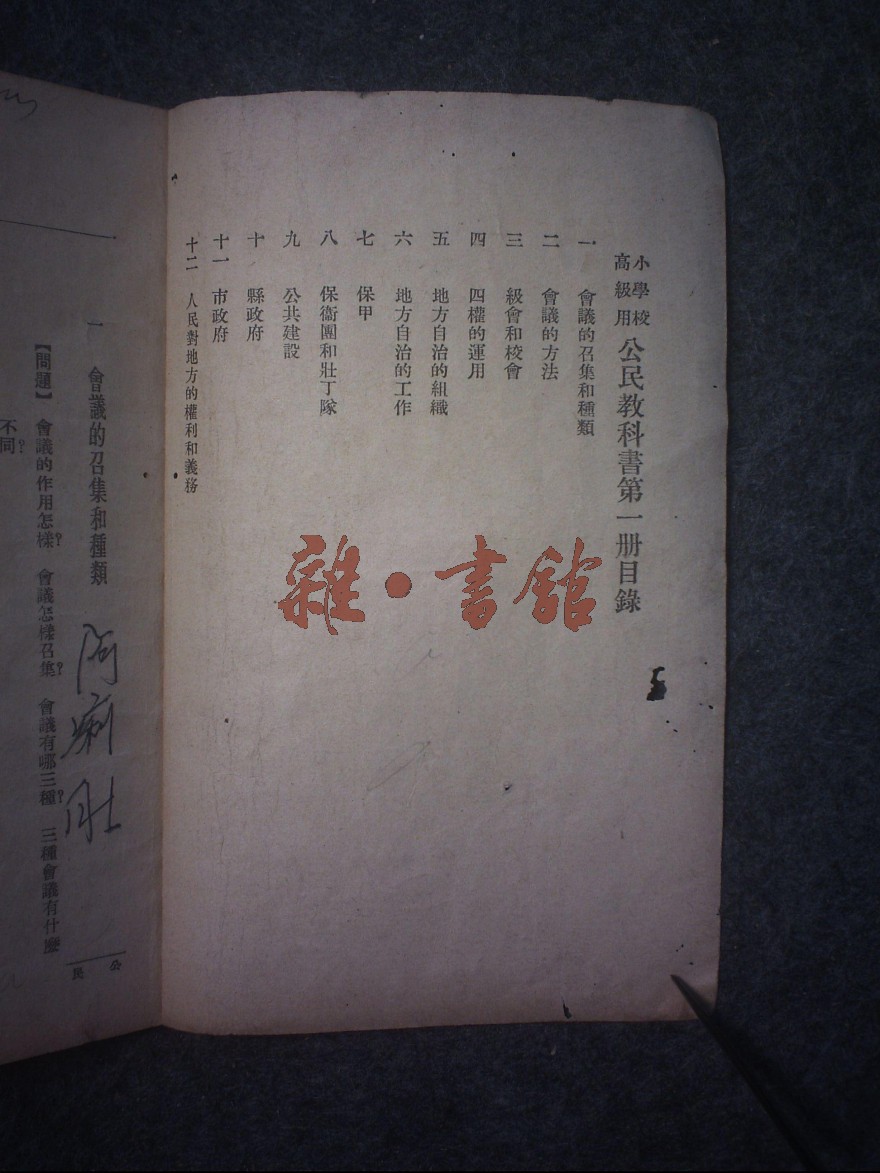 小學校
高級用
公民教科書第一册目錄
一 會議的召集和種類
二 會議的方法
三 級會和校會
四 四權的運用
五 地方自治的組織
六 地方自治的工作
七 保甲
八 保衞團和壯丁隊
九 公共建設
十 縣政府
十一 市政府
十二 人民對地方的權利和義務
雜·書館
公民
一 會議的召集和種類
【問題】 會議的作用怎樣? 會議怎樣召集? 會議有哪三種? 三種會議有什麼
不同?